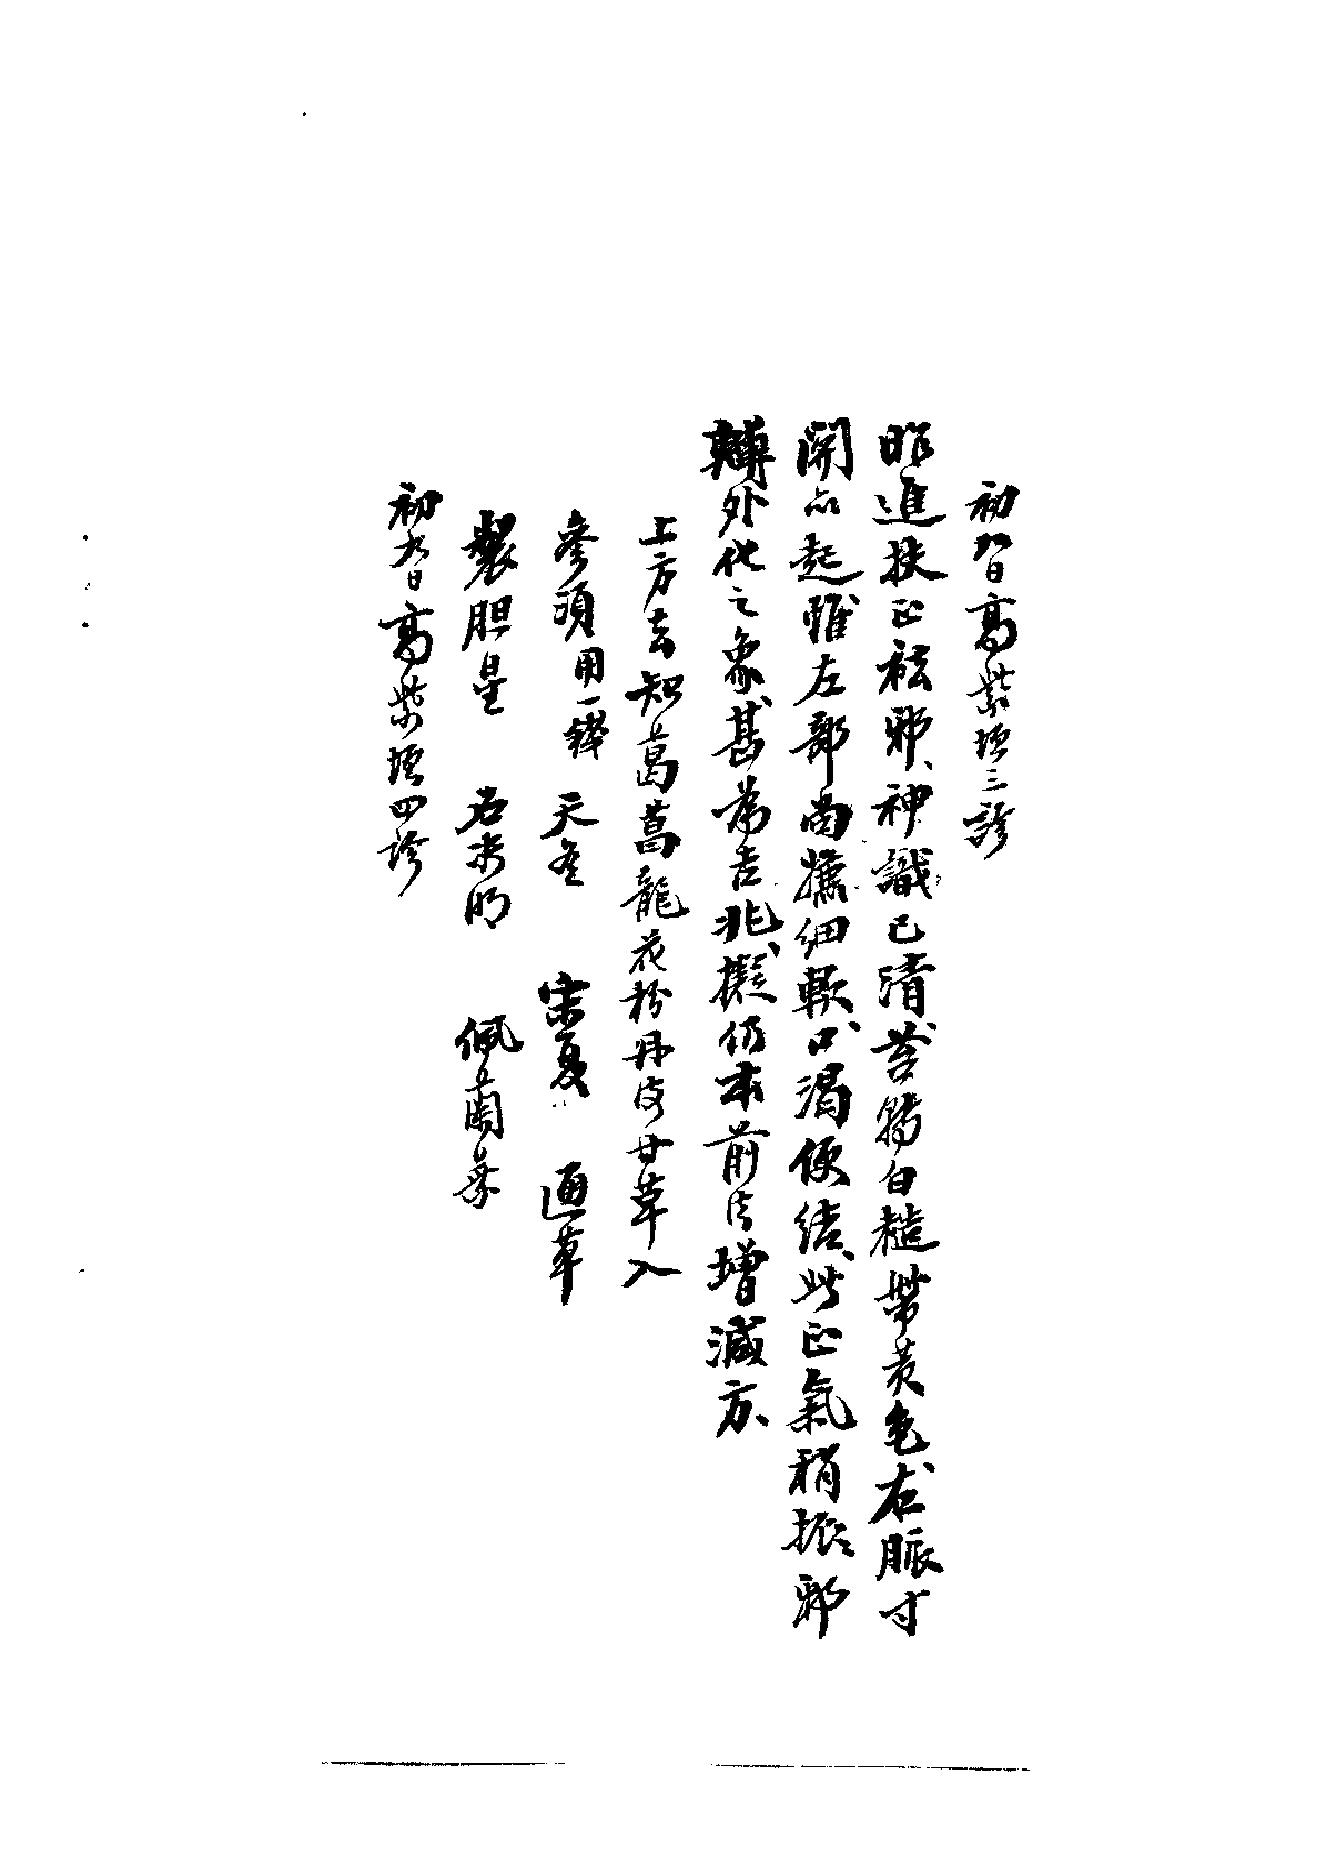 初八日高紫垣三診
昨進扶正祛邪、神識已清、苔腸白糙帶黃色、右脈寸
關亦起、惟左部尚據細軟、口渴便結、此正氣稍振、邪
轉外化之象、甚為吉兆、擬仍本前法增減方、
上方去知葛菖龍花粉丹皮甘草入
參須用一錢 天冬 宋夏 通草
製胆星 石决明 佩蘭葉
初九日高紫垣四診